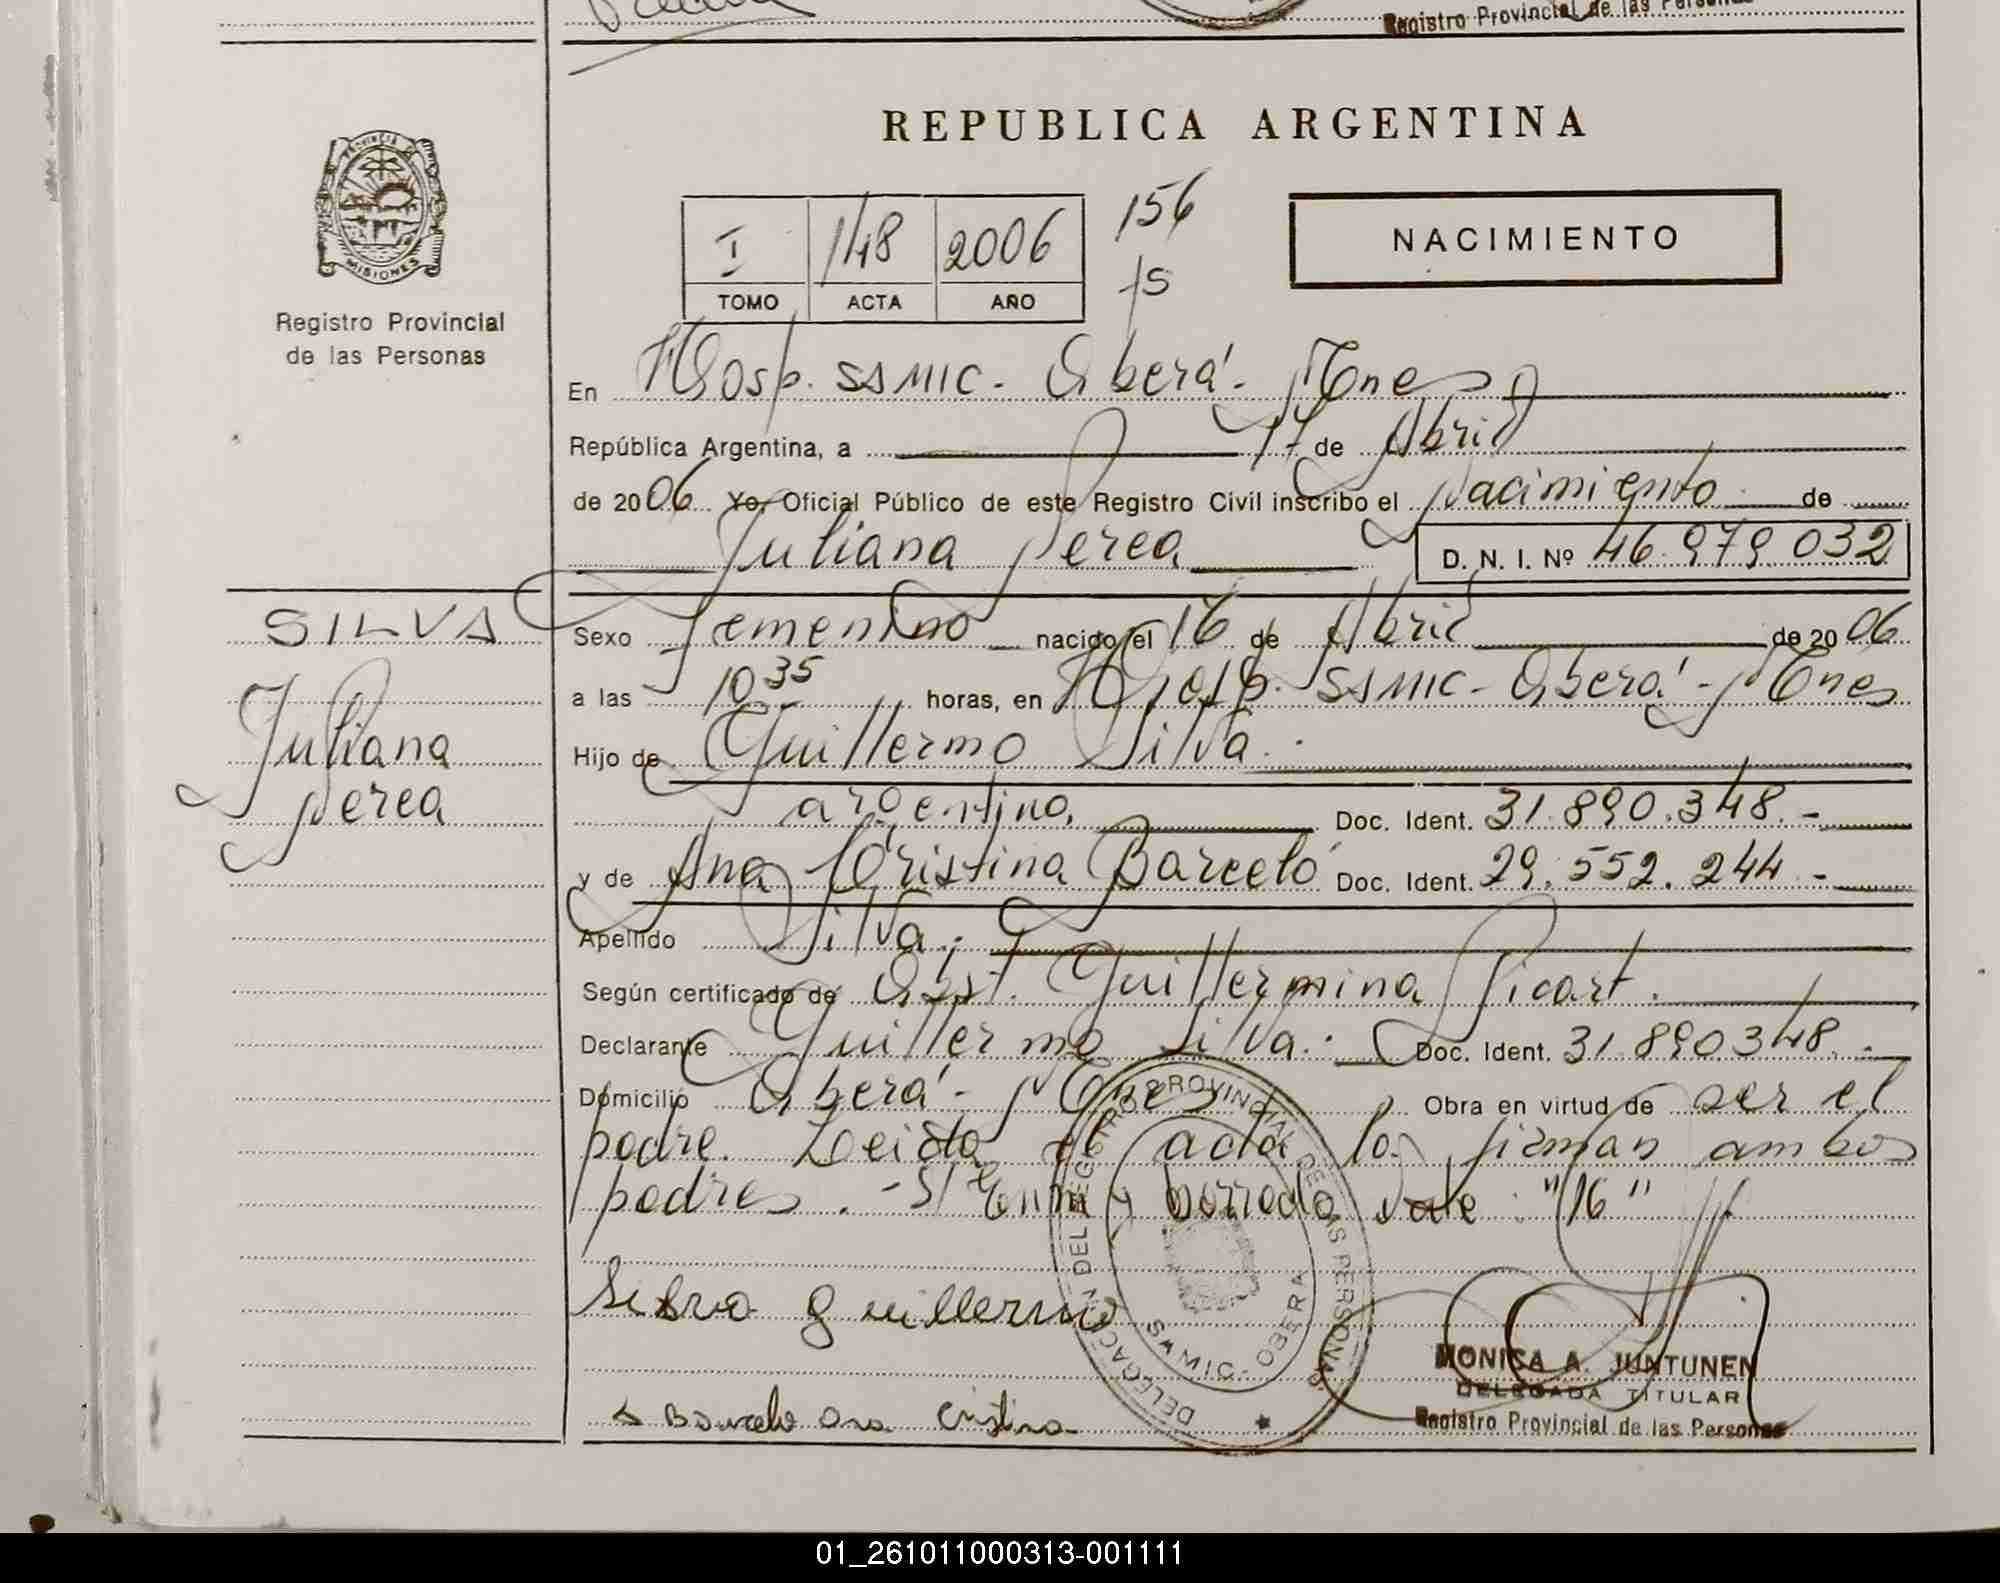 Registro Provincial de las Personas
REPUBLICA ARGENTINA
PROVINCIA DE
MISIONES
Registro Provincial
de las Personas
I 148 2006
TOMO ACTA AÑO
156
15
NACIMIENTO
En Hosp. SSMIC - Oberá - Mnes
República Argentina, a 17 de Abril
de 2006 Yo, Oficial Público de este Registro Civil inscribo el Nacimiento de
Juliana Perea D. N. I. Nº 46.979.032
SILVA
Juliana
Perea
Sexo Femenino nacido el 16 de Abril de 2006
a las 10 35 horas, en Hosp. SSMIC - Oberá - Mnes
Hijo de Guillermo Silva.
argentino, Doc. Ident. 31.890.348.-
y de Ana Cristina Barceló Doc. Ident. 29.552.244 -
Apellido Silva.
Según certificado de Obst. Guillermina Picart.
Declarante Guillermo Silva. Doc. Ident. 31.890348.-
Domicilio Oberá - Mnes Obra en virtud de ser el
padre. Leida el acta la firman ambos
padres. - S/ Enm y borrado vale: "16"
Silva Guillermo
Barcelo Ana Cristina
DELEGACION DEL REGISTRO PROVINCIAL DE LAS PERSONAS
OBERA
MONICA A. JUNTUNEN
DELEGADA TITULAR
Registro Provincial de las Personas
01_261011000313-001111